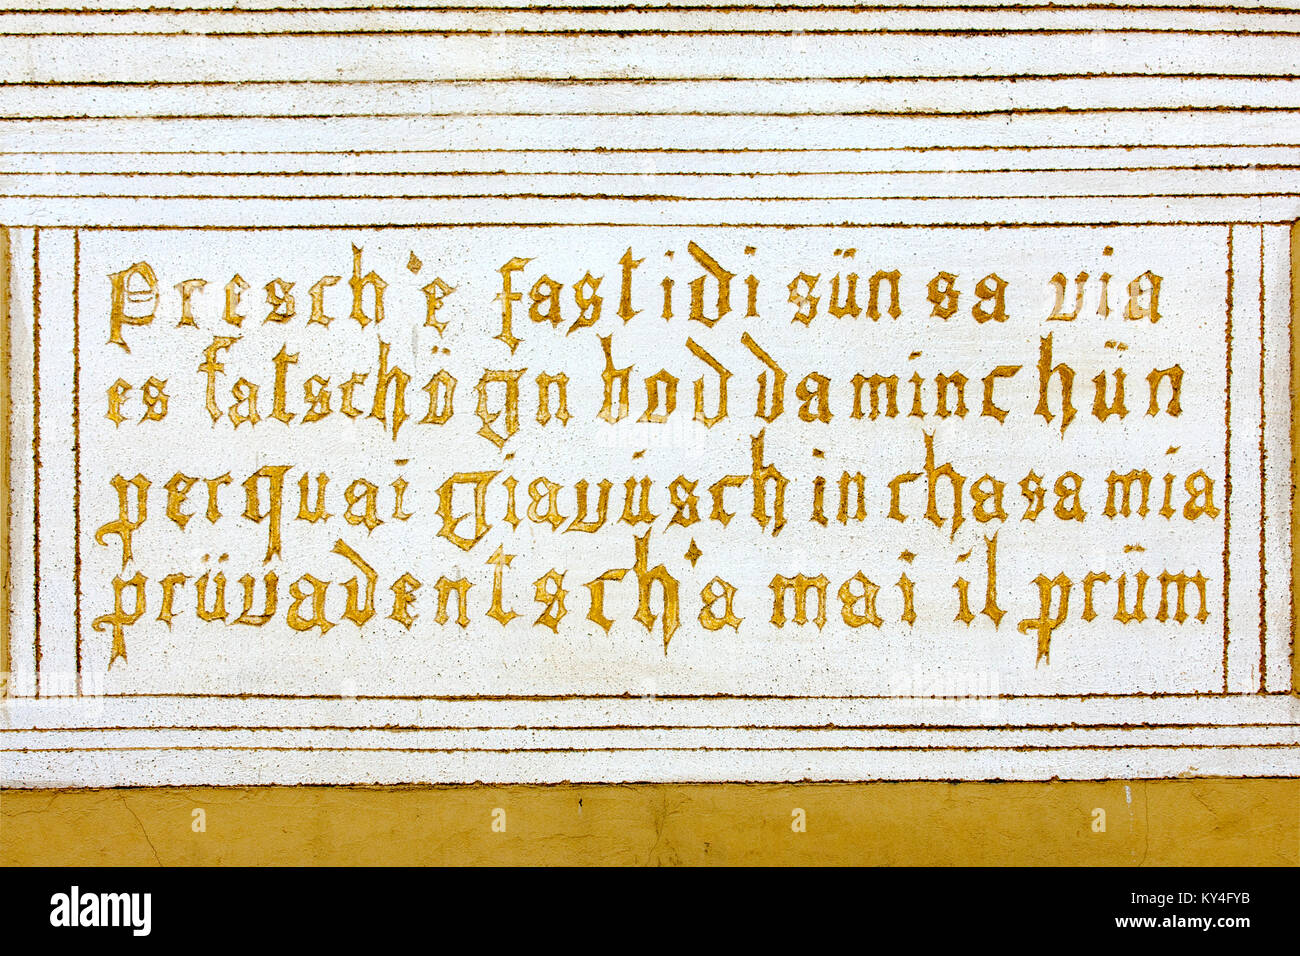 Presch'e fastidi sün sa via
es fatschögn bod da minchün
perquai giavüsch in chasa mia
prüvadentsch'a mai il prüm
alamy
Image ID: KY4FYB
www.alamy.com